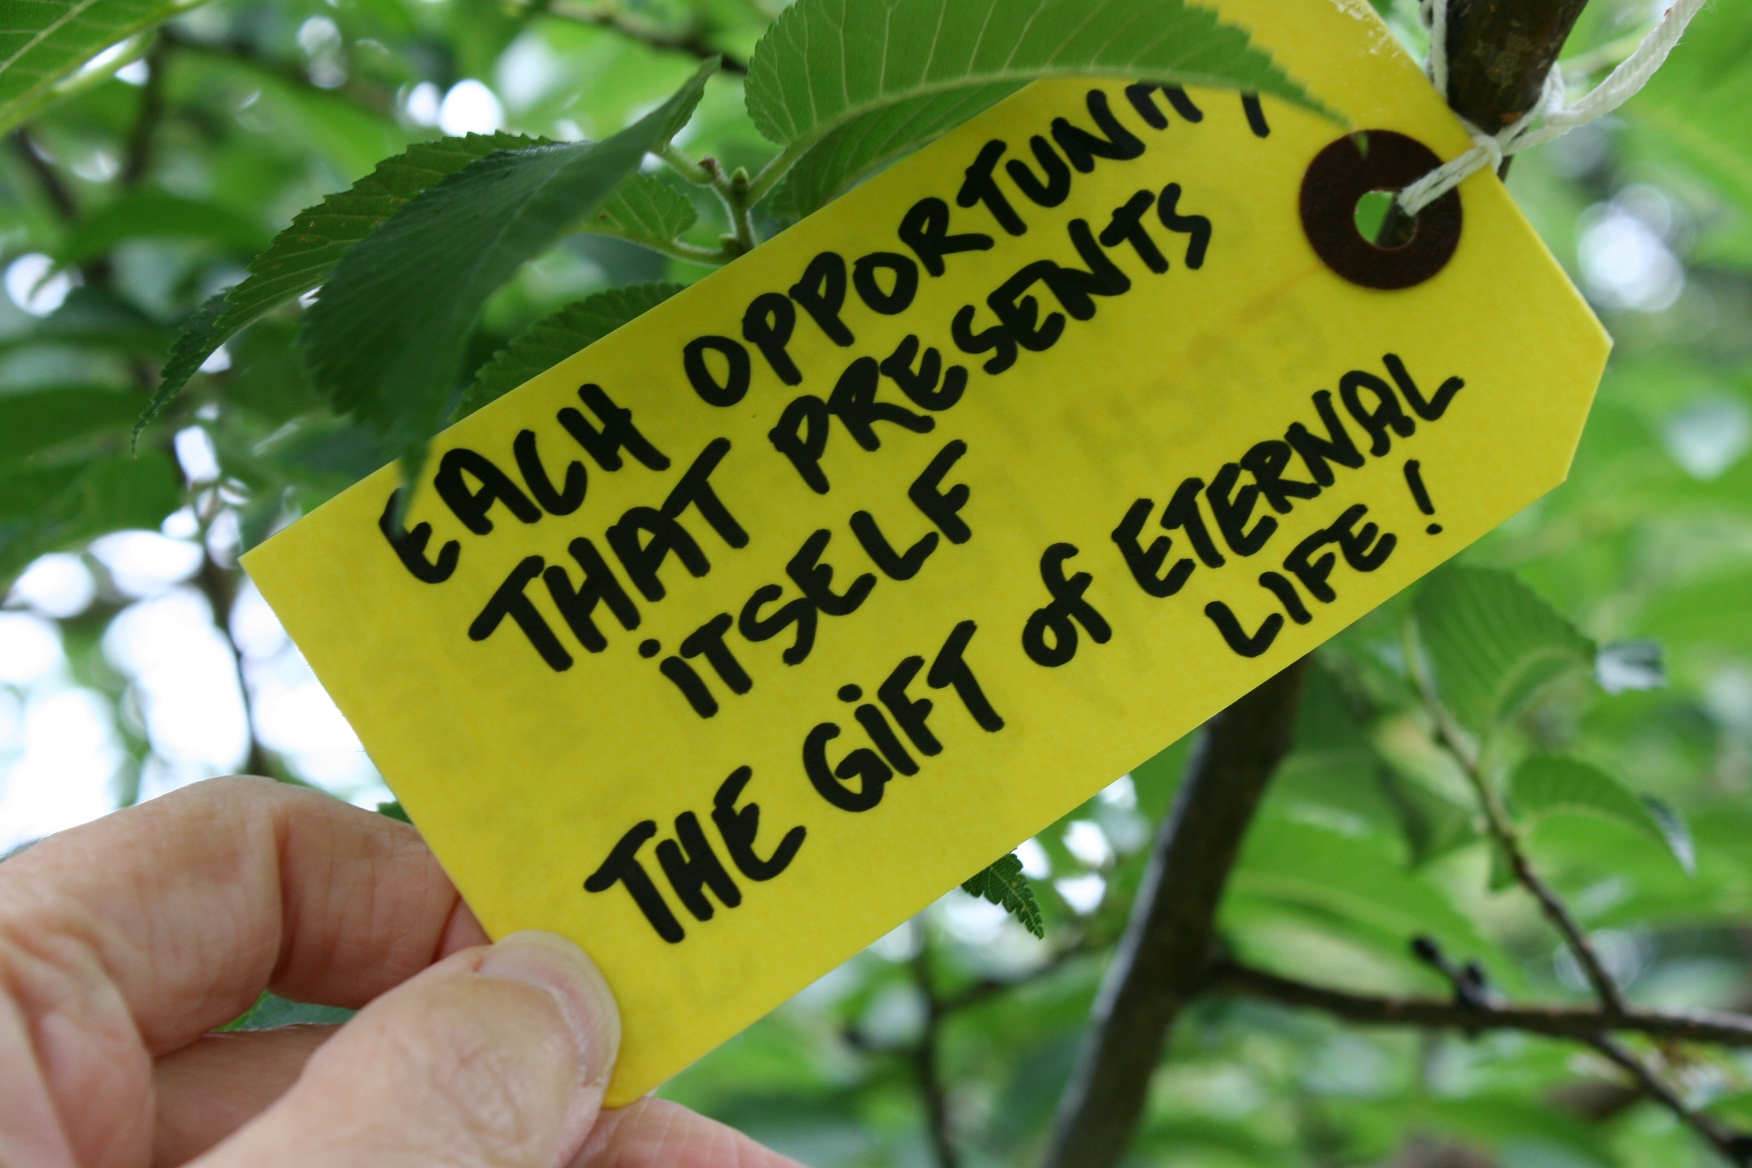 EACH OPPORTUNITY
THAT PRESENTS
iTSELF
THE GiFT of ETERNAL
LIFE!